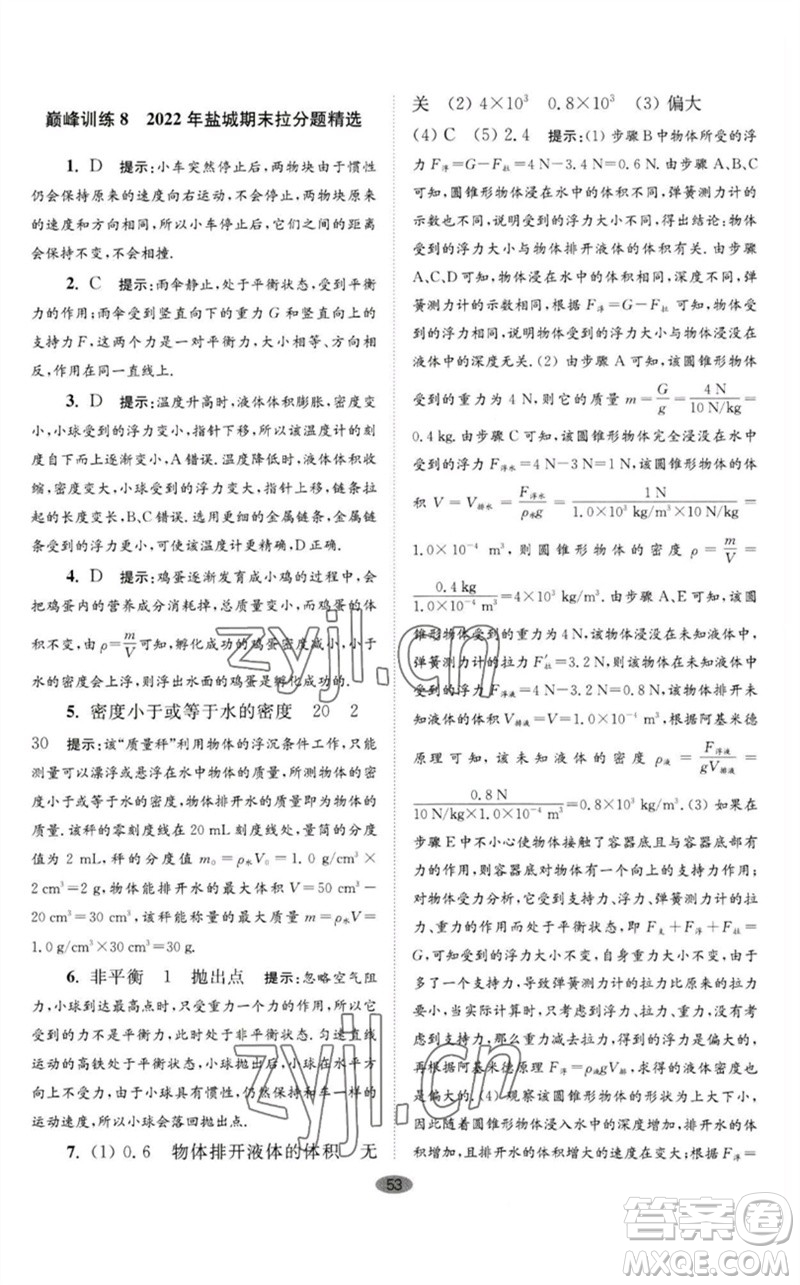 巅峰训练 8　2022 年盐城期末拉分题精选
1. D　提示:小车突然停止后,两物块由于惯性
仍会保持原来的速度向右运动,两物块因原来的
速度和方向相同,所以小车停止后,它们的距离
会保持不变,不会相撞.
2. C　提示:雨伞静止,处于平衡状态,受到平衡
力的作用;雨伞受到竖直向下的重力 G 和向上的
支持力 F,这两个力是一对平衡力,大小相等、方向
相反.
3. D　提示:温度升高时,液体体积膨胀,密度变
小,小球受到的浮力变小,指针下降,A 错误.液体体积收
缩,密度变大,小球受到的浮力变大,指针上移,链条拉
起的长度变长,B、C 错误.选用更细的金属链条,金属链
条受到的浮力更小,可使该温度计更精确,D 正确.
4. D　提示:鸡蛋逐渐发育成小鸡的过程中,会
把鸡蛋内的营养成分消耗掉,总质量变小,而蛋的体
积不变,由 ρ=m/V 可知,孵化成功的鸡蛋密度变小,小于
水的密度会上浮,浮出水面的鸡蛋是孵化成功的.
5. 密度小于或等于水的密度　20　2
30　提示:该“质量秤”利用物体的浮沉条件工作,只能
测量可以漂浮或悬浮在水中物体的质量,所测物体的密
度要小于或等于水的密度,物体排开水的质量等于物体
质量.该秤的零刻度线在 20 mL 刻度线处,量筒的分度
值为 2 mL,秤的分度值 m₀=ρ水V₀=1.0 g/cm³×
2 cm³=2 g,物体能排开水的最大体积 V=50 cm³-
20 cm³=30 cm³,该秤能称量的最大质量 m=ρ水V=
1.0 g/cm³×30 cm³=30 g.
6. 非平衡　1　抛出点　提示:忽略空气阻
力,小球达到最高点时,只受重力一个力的作用,小球受
到的力不是平衡力,此时处于非平衡状态.匀速直线运
动的高铁处于平衡状态,竖直抛出后,小球在水平方
向上不受力的作用,小球由于惯性,仍然保持和车一样的
运动状态,所以小球会落回抛出点.
7. (1) 0.6　物体排开液体的体积　无
关　(2) 4×10³　0.8×10³　(3) 偏大
(4) C　(5) 2.4　提示:(1) 步骤 B 中物体所受的浮
力 F浮=G-F拉=4 N-3.4 N=0.6 N.由步骤 A、B、C
可知,圆锥形物体浸在水中的体积不同,弹簧测力计的
示数也不同,说明受到的浮力大小不同,得出结论:物体
受到的浮力大小与物体排开液体的体积有关.由步骤
A、C、D 可知,圆锥形物体浸没在水中的深度不同,弹
簧测力计的示数相同,根据 F浮=G-F拉 可知,物体受到
的浮力相同,说明物体受到的浮力大小与物体浸没在
液体中的深度无关.(2) 由步骤 A 可知,该圆锥形物体
受到的重力为 4 N,则它的质量 m=G/g=4 N/10 N/kg=
0.4 kg.由步骤 C 可知,该圆锥形物体完全浸没在水中
受到的浮力 F浮水=4 N-3 N=1 N,该圆锥形物体的体
积 V=V排水=F浮水/ρ水g=1 N/1.0×10³ kg/m³×10 N/kg=
1.0×10⁻⁴ m³,则圆锥形物体的密度 ρ=m/V=
0.4 kg/1.0×10⁻⁴ m³=4×10³ kg/m³.由步骤 A、E 可知,该圆
锥形物体受到的重力为 4 N,该物体浸没在未知液体中,
弹簧测力计的拉力 F′拉=3.2 N,该物体在未知液体中
受到的浮力 F浮液=4 N-3.2 N=0.8 N,该物体排开未
知液体的体积 V排液=V=1.0×10⁻⁴ m³.根据阿基米德
原理可知,该未知液体的密度 ρ液=F浮液/gV排液=
0.8 N/10 N/kg×1.0×10⁻⁴ m³=0.8×10³ kg/m³.(3) 如果在
步骤 E 中不小心使物体接触了容器底且与容器底有力
的作用,则容器底部对物体有一个向上的支持力作用.
对物体受力分析,它受到向上的支持力、浮力、弹簧测力
计的拉力和重力作用而处于平衡状态,即 F支+F浮+F拉=
G,可见,由于支持力的存在,自身重力大小不变,浮力大
小不变,导致弹簧测力计的拉力比原来的拉力小了,当
然,在实际计算时,只考虑物体受到拉力和重力作用,不
考虑到支持力,那么重力减去拉力,求得的浮力比原来
的浮力偏大了.根据阿基米德原理 F浮=ρ液gV排,求得的液体
密度值偏大.(4) 观察该圆锥形物体,发现它上小下大,
因此随着圆锥形物体浸入水中的深度增加,排开水的体
积增加,但是体积的增加量逐渐变慢,根据 F浮=
53
zyjl.cn
zyjl.cn
答案卷
MXQE.COM